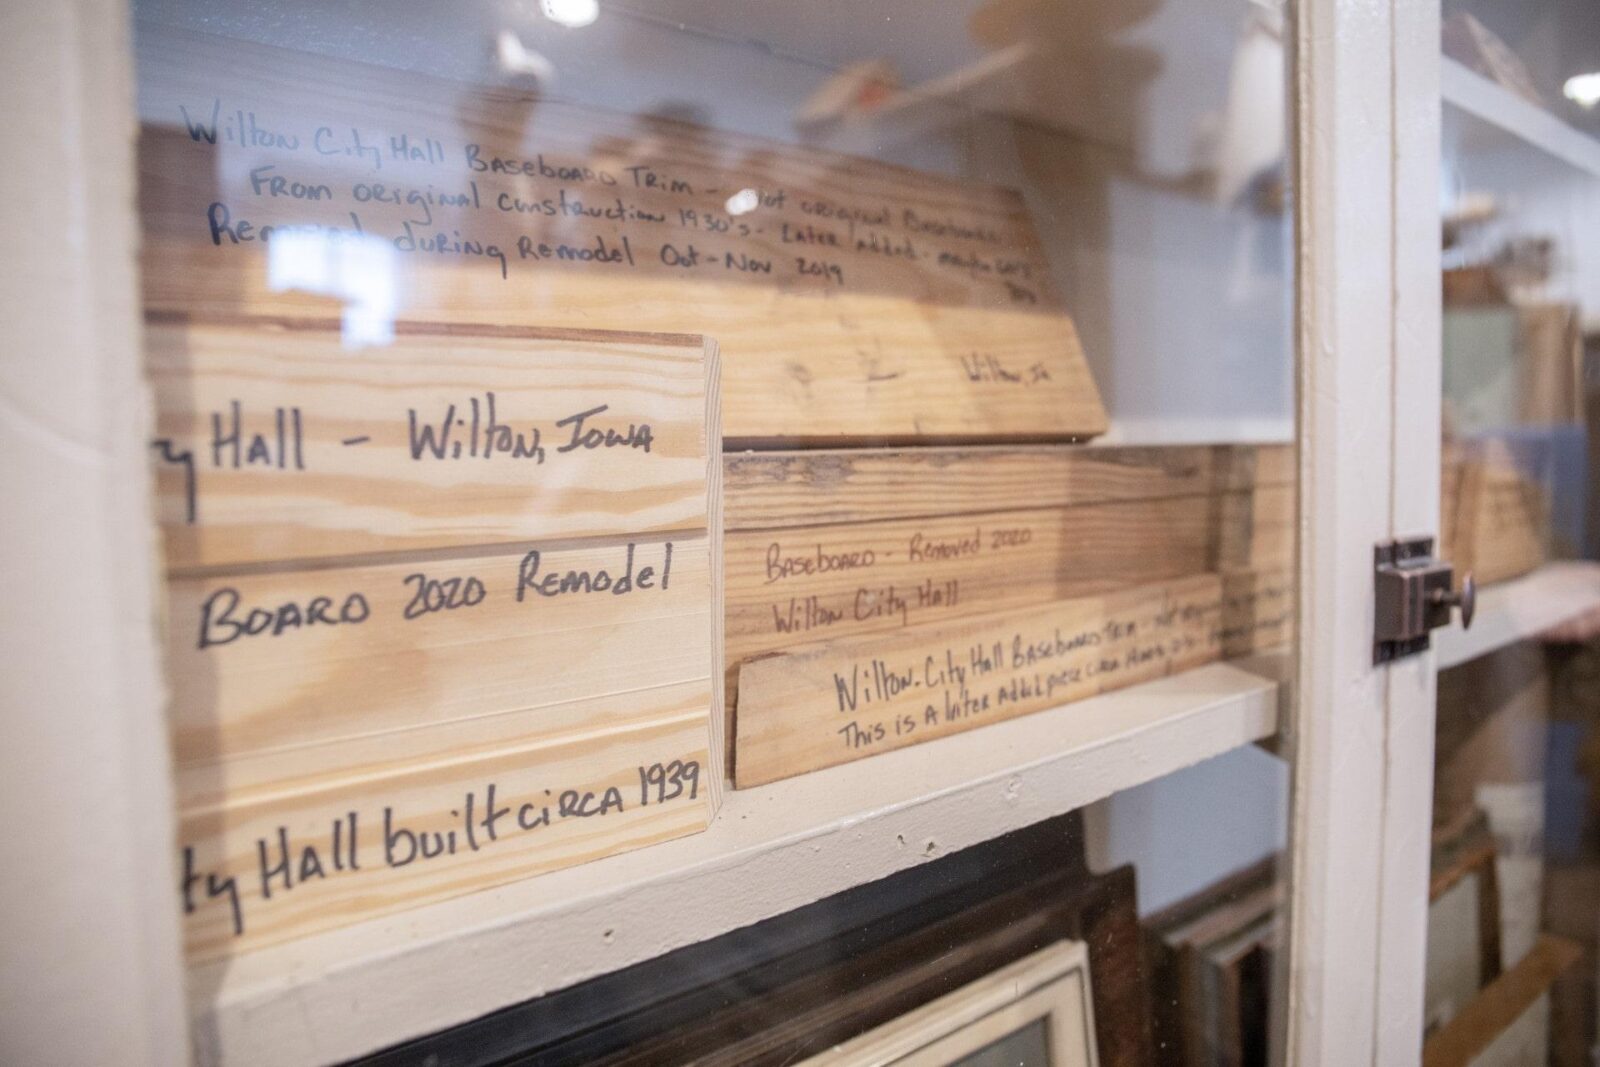 Wilton City Hall Baseboard Trim - Not original Baseboards
From original construction 1930's - Later added - maybe
Removed during Remodel Oct-Nov 2019
Wilton, IA
y Hall - Wilton, Iowa
Board 2020 Remodel
ty Hall built circa 1939
Baseboard - Removed 2020
Wilton City Hall
Wilton City Hall Baseboard Trim - Not
This is A later Added piece circa